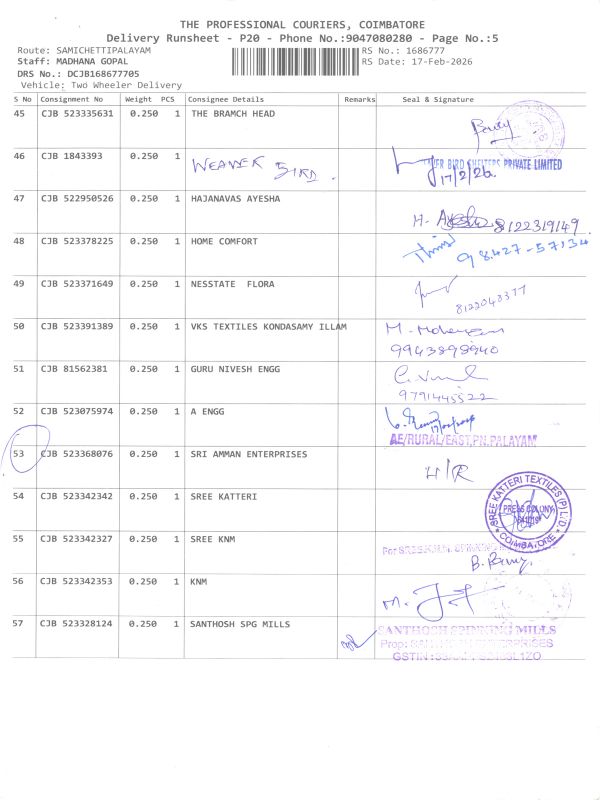 THE PROFESSIONAL COURIERS, COIMBATORE
Delivery Runsheet - P20 - Phone No.:9047080280 - Page No.:5
Route: SAMICHETTIPALAYAM RS No.: 1686777
Staff: MADHANA GOPAL RS Date: 17-Feb-2026
DRS No.: DCJB168677705
Vehicle: Two Wheeler Delivery
S No Consignment No Weight PCS Consignee Details Remarks Seal & Signature
45 CJB 523335631 0.250 1 THE BRAMCH HEAD
46 CJB 1843393 0.250 1 WEAVER BIRD
BIRD SHELTERS PRIVATE LIMITED
17/2/26.
47 CJB 522950526 0.250 1 HAJANAVAS AYESHA
H. 8122319149
48 CJB 523378225 0.250 1 HOME COMFORT
98427-57134
49 CJB 523371649 0.250 1 NESSTATE FLORA
8122043377
50 CJB 523391389 0.250 1 VKS TEXTILES KONDASAMY ILLAM
9943898940
51 CJB 81562381 0.250 1 GURU NIVESH ENGG
9791445522
52 CJB 523075974 0.250 1 A ENGG
AE/RURAL/EAST,PN.PALAYAM
53 CJB 523368076 0.250 1 SRI AMMAN ENTERPRISES
H/R
54 CJB 523342342 0.250 1 SREE KATTERI
SREE KATTERI TEXTILES (P) LTD
PRESS COLONY
COIMBATORE
55 CJB 523342327 0.250 1 SREE KNM
56 CJB 523342353 0.250 1 KNM
57 CJB 523328124 0.250 1 SANTHOSH SPG MILLS
SANTHOSH SPINNING MILLS